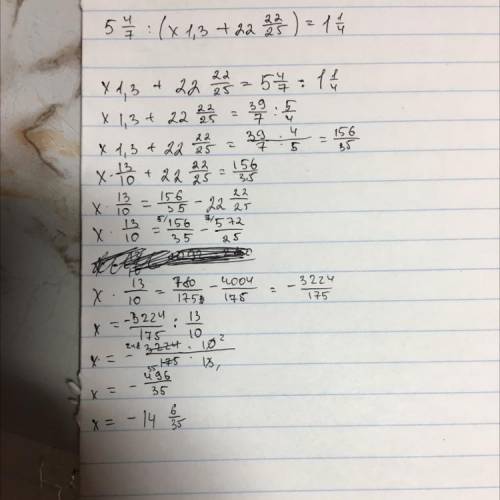 5 4/7 : (x 1,3 + 22 22/25) = 1 1/4
x 1,3 + 22 22/25 = 5 4/7 : 1 1/4
x 1,3 + 22 22/25 = 39/7 : 5/4
x 1,3 + 22 22/25 = 39 · 4 / 7 · 5 = 156/35
x · 13/10 + 22 22/25 = 156/35
x · 13/10 = 156/35 - 22 22/25
x · 13/10 = 5/ 156/35 - 7/ 572/25
x · 13/10 = 780/175 - 4004/175 = - 3224/175
x = -3224/175 : 13/10
x = - 248 3224 · 10 2 / 35 175 · 13 1
x = - 496/35
x = - 14 6/35